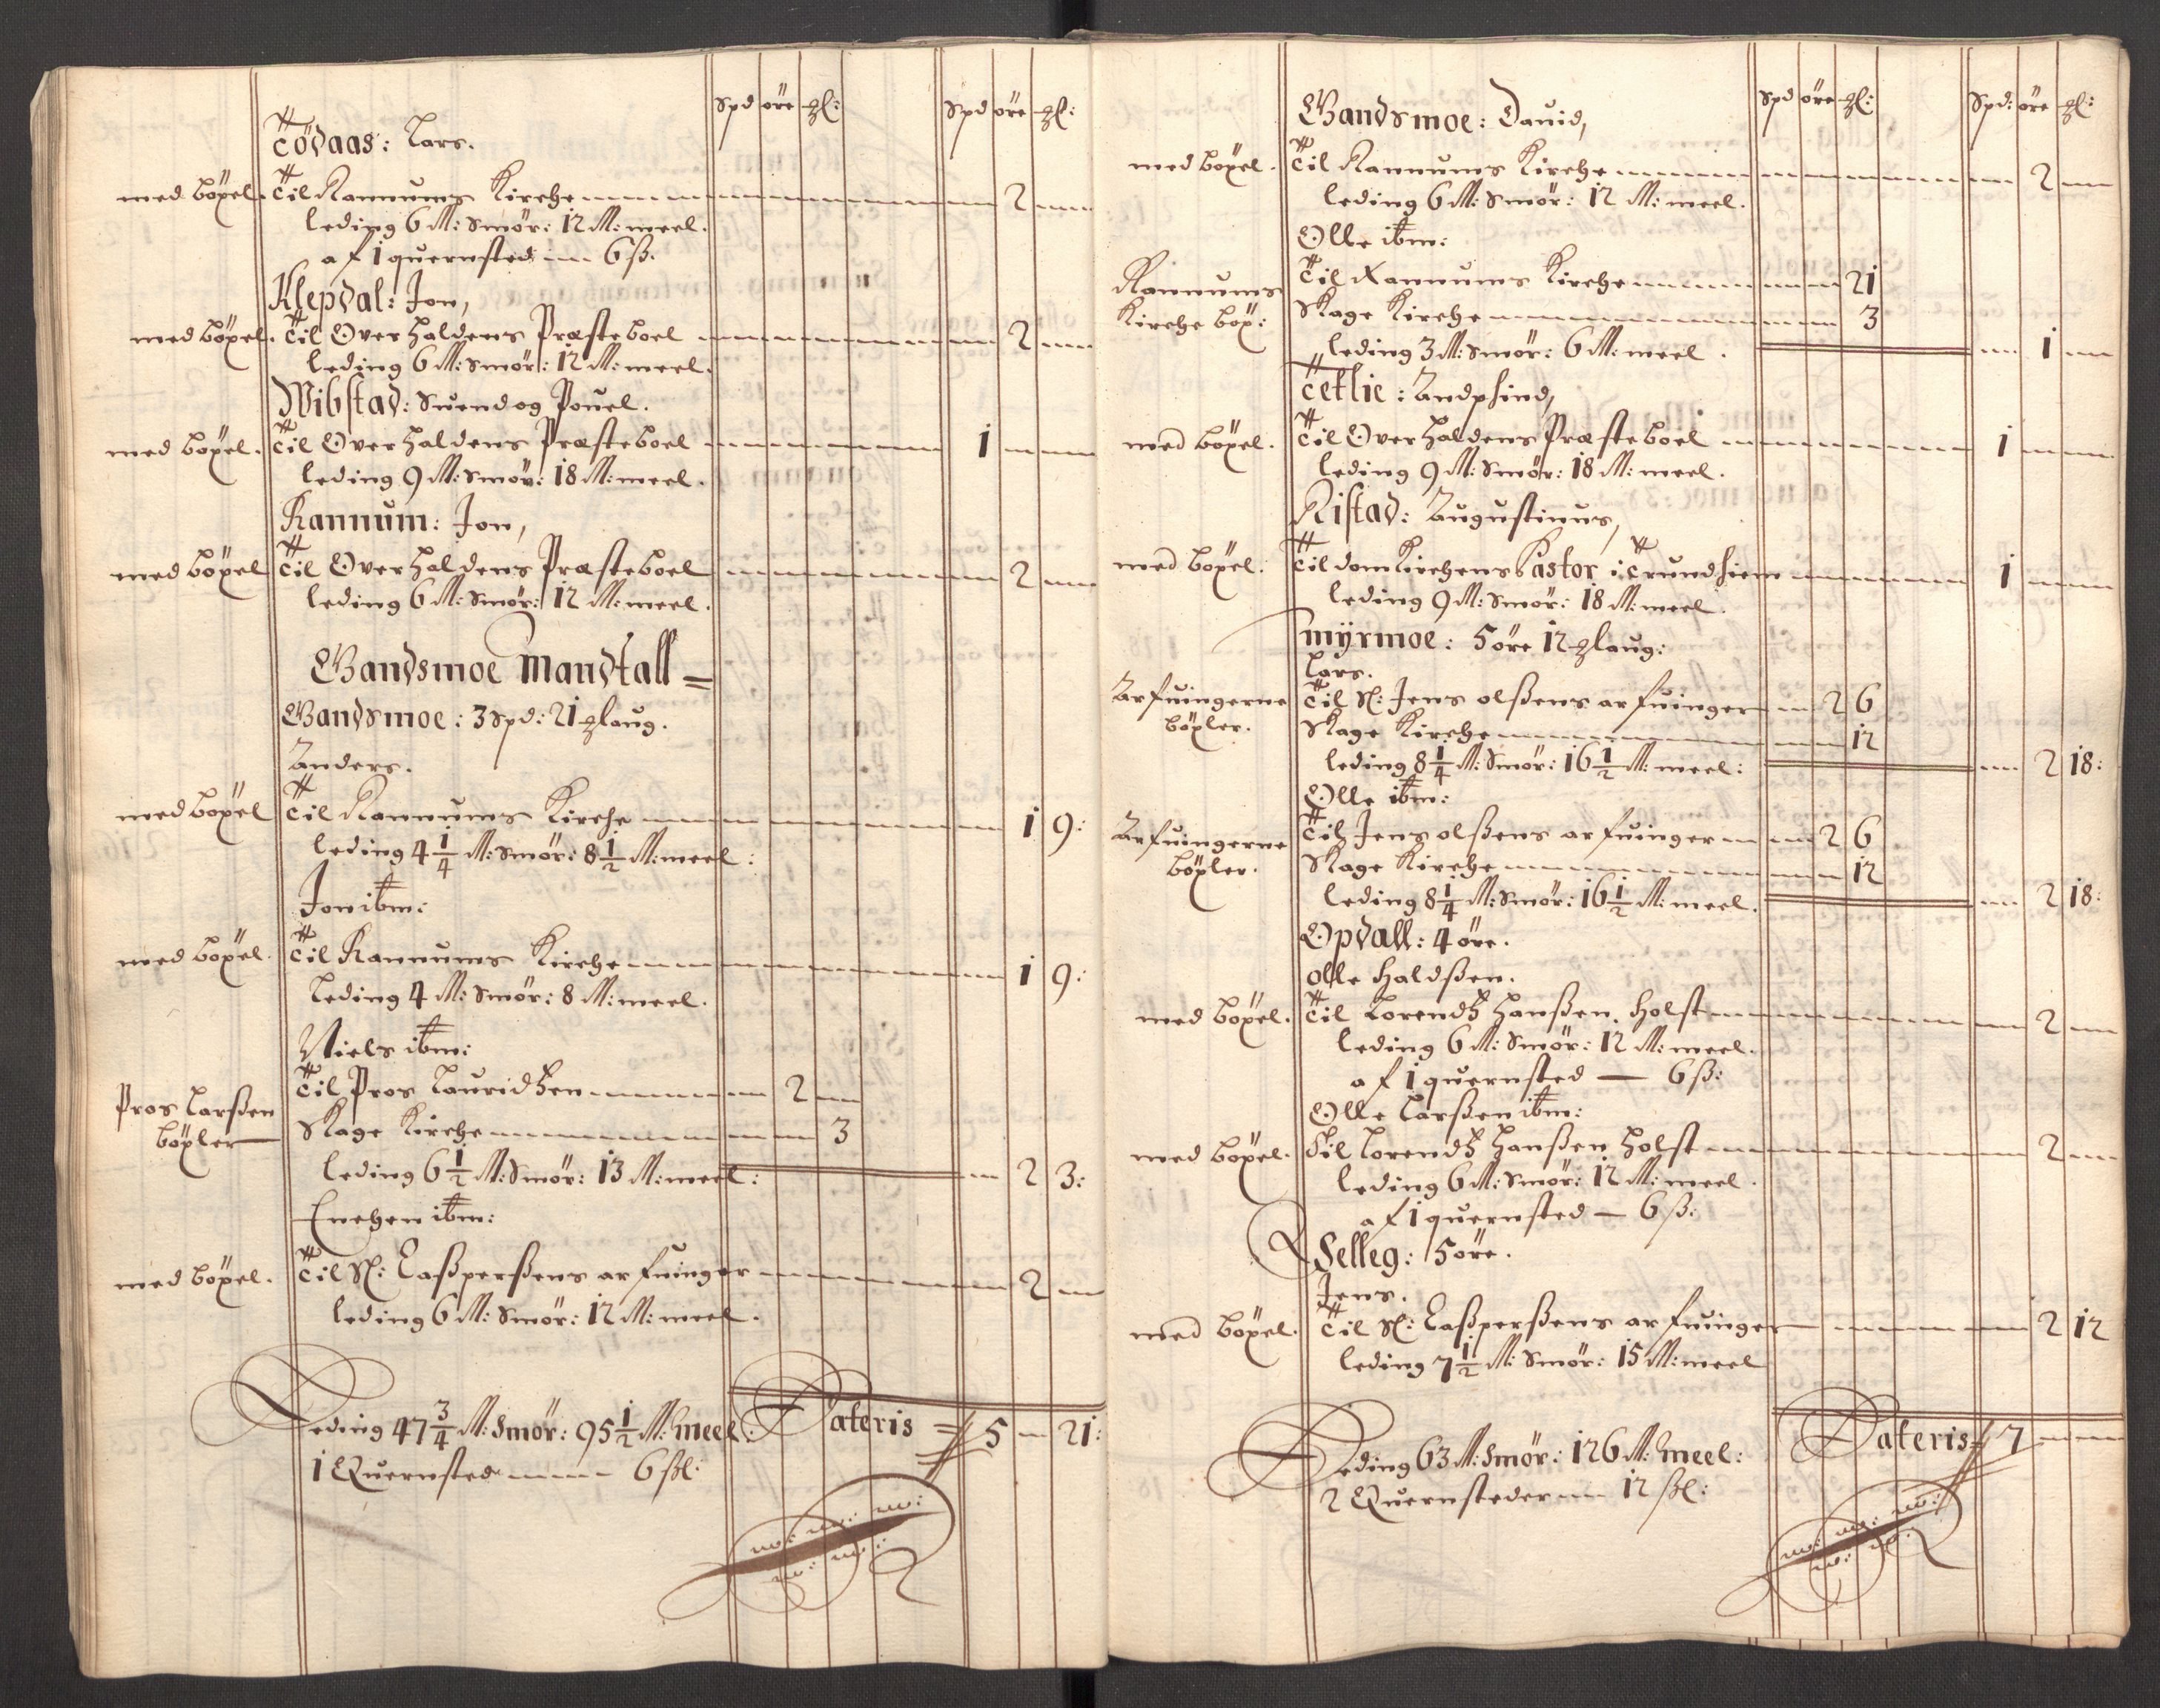 Spd øre gl: Spd øre gl:
Tødaas: Lars.
med böxel. Til Rannums Kirche 2
leding 6 M: Smör: 12 M: meel.
af 1 quernsted 6 ß.
Klepdal: Jon,
med böxel. Til Overhaldens Præsteboel 2
leding 6 M: Smör: 12 M: meel.
Wibstad: Suend og Pouel.
med böxel. Til Overhaldens Præsteboel 1
leding 9 M: Smör: 18 M: meel.
Rannum: Jon,
med böxel Til Overhaldens Præsteboel 2
leding 6 M: Smör: 12 M: meel.
Gandsmoe Mandtall =
Gandsmoe: 3 Spd: 21 glaug.
Anders.
med böxel Til Rannums Kirche 1 9:
leding 4 1/4 M: Smör: 8 1/2 M: meel:
Jon ibm:
med böxel. Til Rannums Kirche 1 9:
Leding 4 M: Smör: 8 M: meel.
Niels ibm:
Pros Larßen Til Pros Lauridtzen 2
böxler Skage Kirche 3
leding 6 1/2 M: Smör: 13 M: meel: 2 3:
Enchen ibm:
med böxel. Til Sl: Caßperßens arfuinger 2
leding 6 M: Smör: 12 M: meel.
Leding 47 3/4 M: Smör: 95 1/2 M: meel: Lateris = 5 21:
1 Quernsted 6 ßl:
Spd øre gl: Spd: øre gl:
Gandsmoe: Dauid,
med böxel. Til Rannums Kirche 2
leding 6 M: Smör: 12 M: meel.
Olle ibm:
Rannums Til Rannums Kirche 21
Kirche böx: Skage Kirche 3
leding 3 M: Smör: 6 M: meel. 1
Tetlie: Andphind,
med böxel. Til Overhaldens Præsteboel 1
leding 9 M: Smör: 18 M: meel.
Ristad: Augustinus,
med böxel. Til domKirchens Pastor i Trundhiem 1
leding 9 M: Smör: 18 M: meel.
Myrmoe: 5 öre 12 glaug:
Lars.
Arfuingerne Til Sl: Jens olßens arfuinger 2 6
böxler. Skage Kirche 12
leding 8 1/4 M: Smör: 16 1/2 M: meel: 2 18:
Olle ibm:
Arfuingerne Til Jens olßens arfuinger 2 6
böxler. Skage Kirche 12
leding 8 1/4 M: Smör: 16 1/2 M: meel. 2 18:
Opdall: 4 öre.
olle Haldßen.
med böxel. Til Lorendtz Hanßen Holst 2
leding 6 M: Smör: 12 M: meel.
af 1 quernsted — 6 ß:
Olle Larßen ibm:
med böxel. Til Lorendtz Hanßen Holst 2
leding 6 M: Smör: 12 M: meel.
af 1 quernsted — 6 ß:
Selleg: 5 öre.
Jens.
med böxel. Til Sl: Caßperßens arfuinger 2 12
leding 7 1/2 M: Smör: 15 M: meel
Leding 63 M: Smör: 126 M: meel: Lateris = 7
2 Quernsteder 12 ßl: